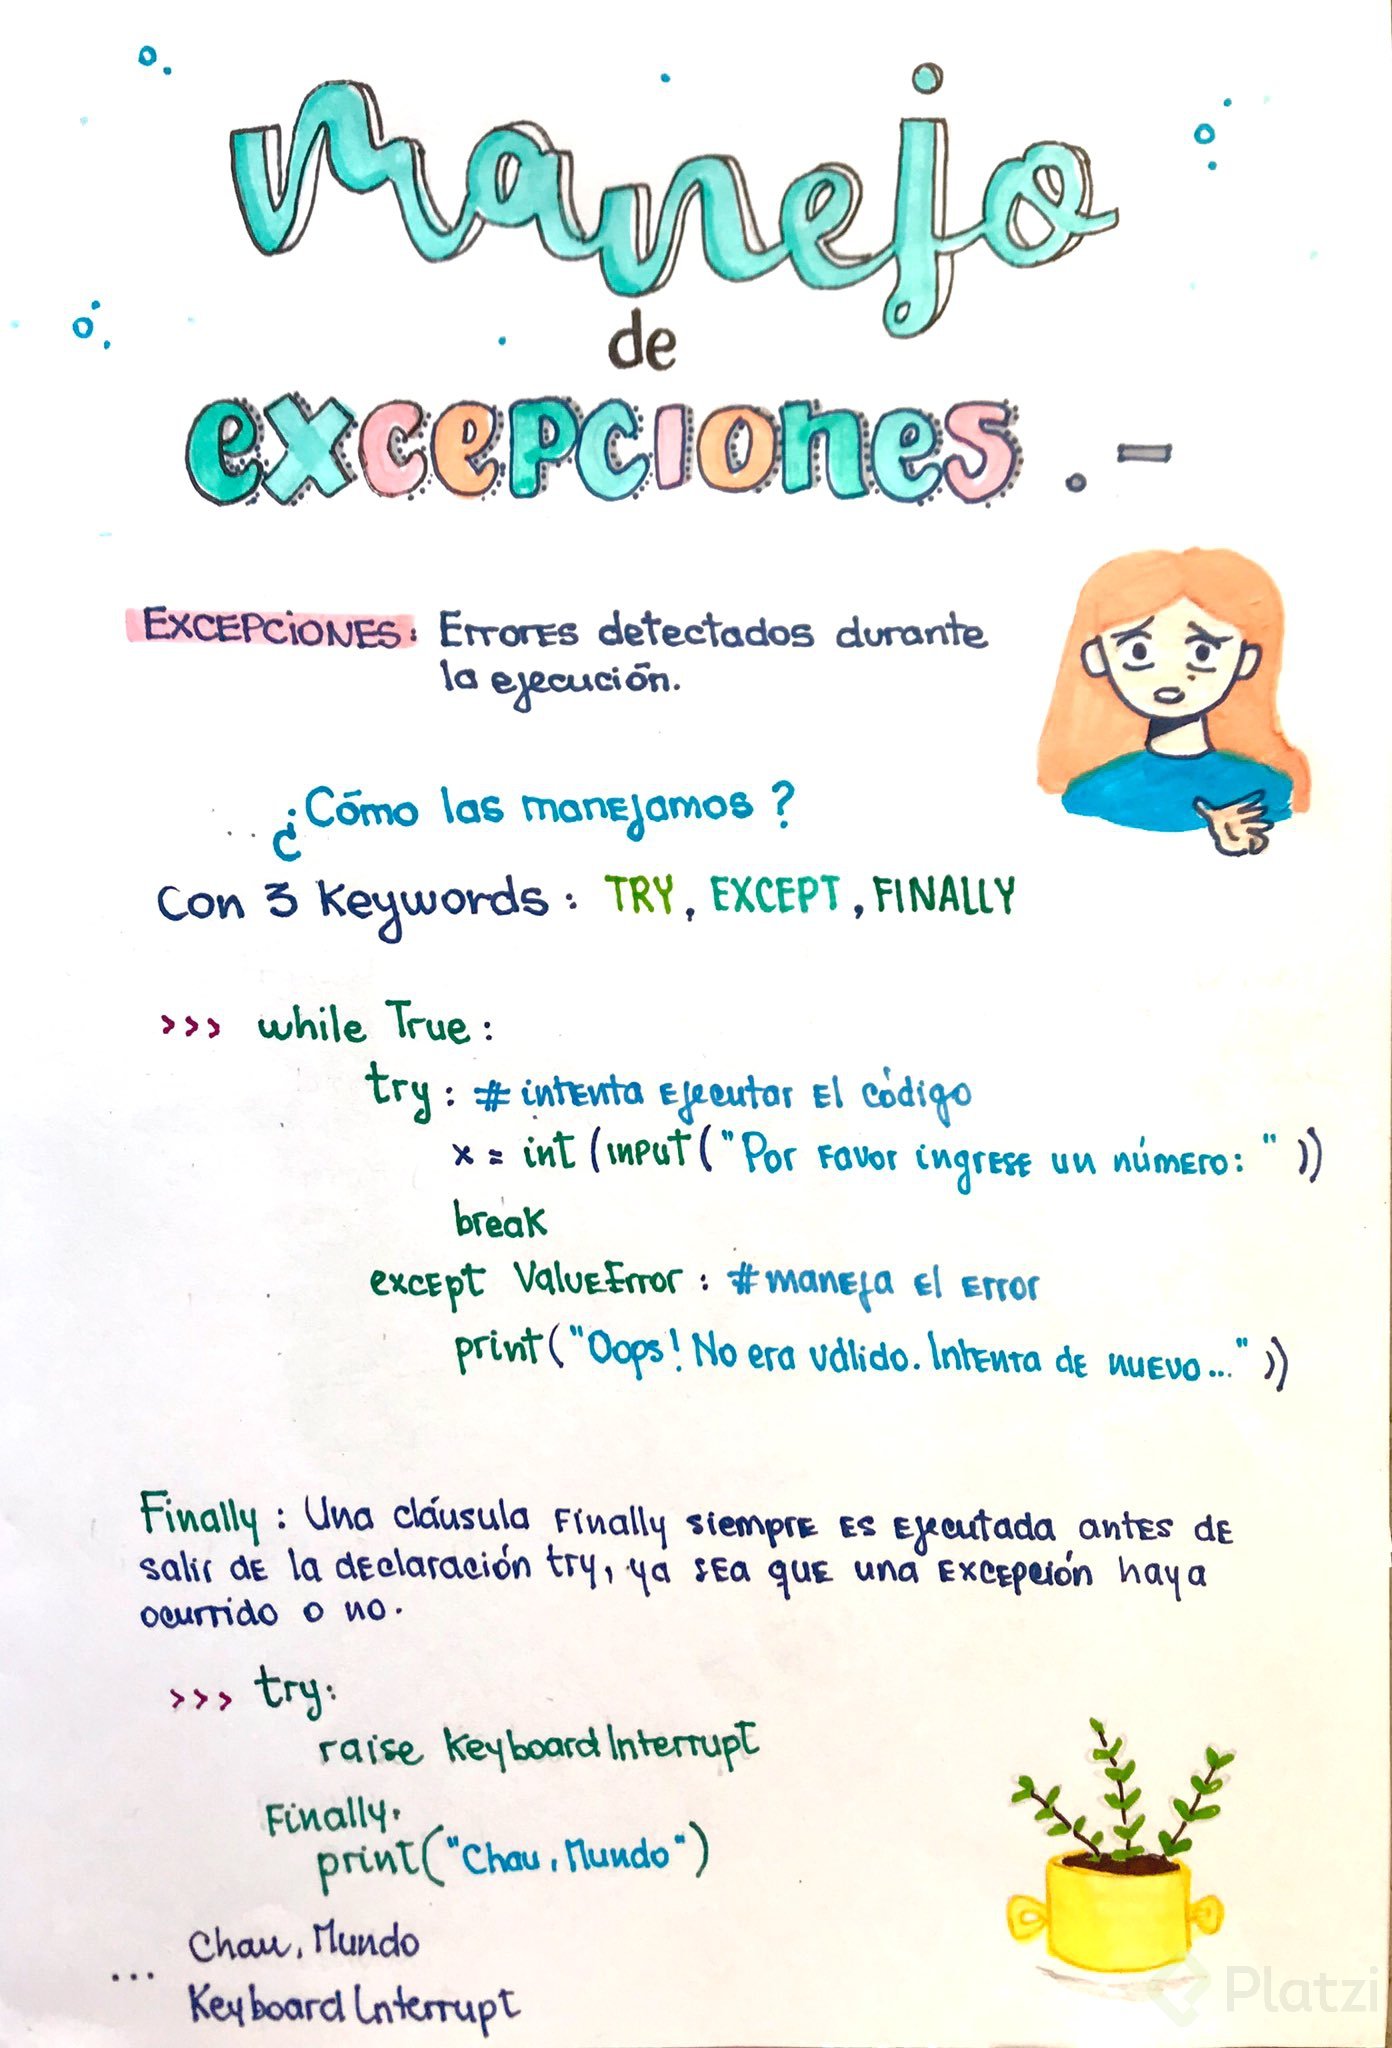 manejo
de
excepciones.-
EXCEPCiONES: Errores detectados durante
la ejecución.
... ¿Cómo las manejamos?
Con 3 Keywords: TRY, EXCEPT, FINALLY
>>> while True:
try: # intenta ejecutar el código
x = int (input("Por favor ingrese un número: "))
break
except ValueError: #maneja el error
print("Oops! No era válido. Intenta de nuevo..."))
Finally: Una cláusula Finally siempre es ejecutada antes de
salir de la declaración try, ya sea que una excepción haya
ocurrido o no.
>>> try:
raise KeyboardInterrupt
Finally:
print("Chau, Mundo")
Chau, Mundo
...
KeyboardInterrupt
Platzi